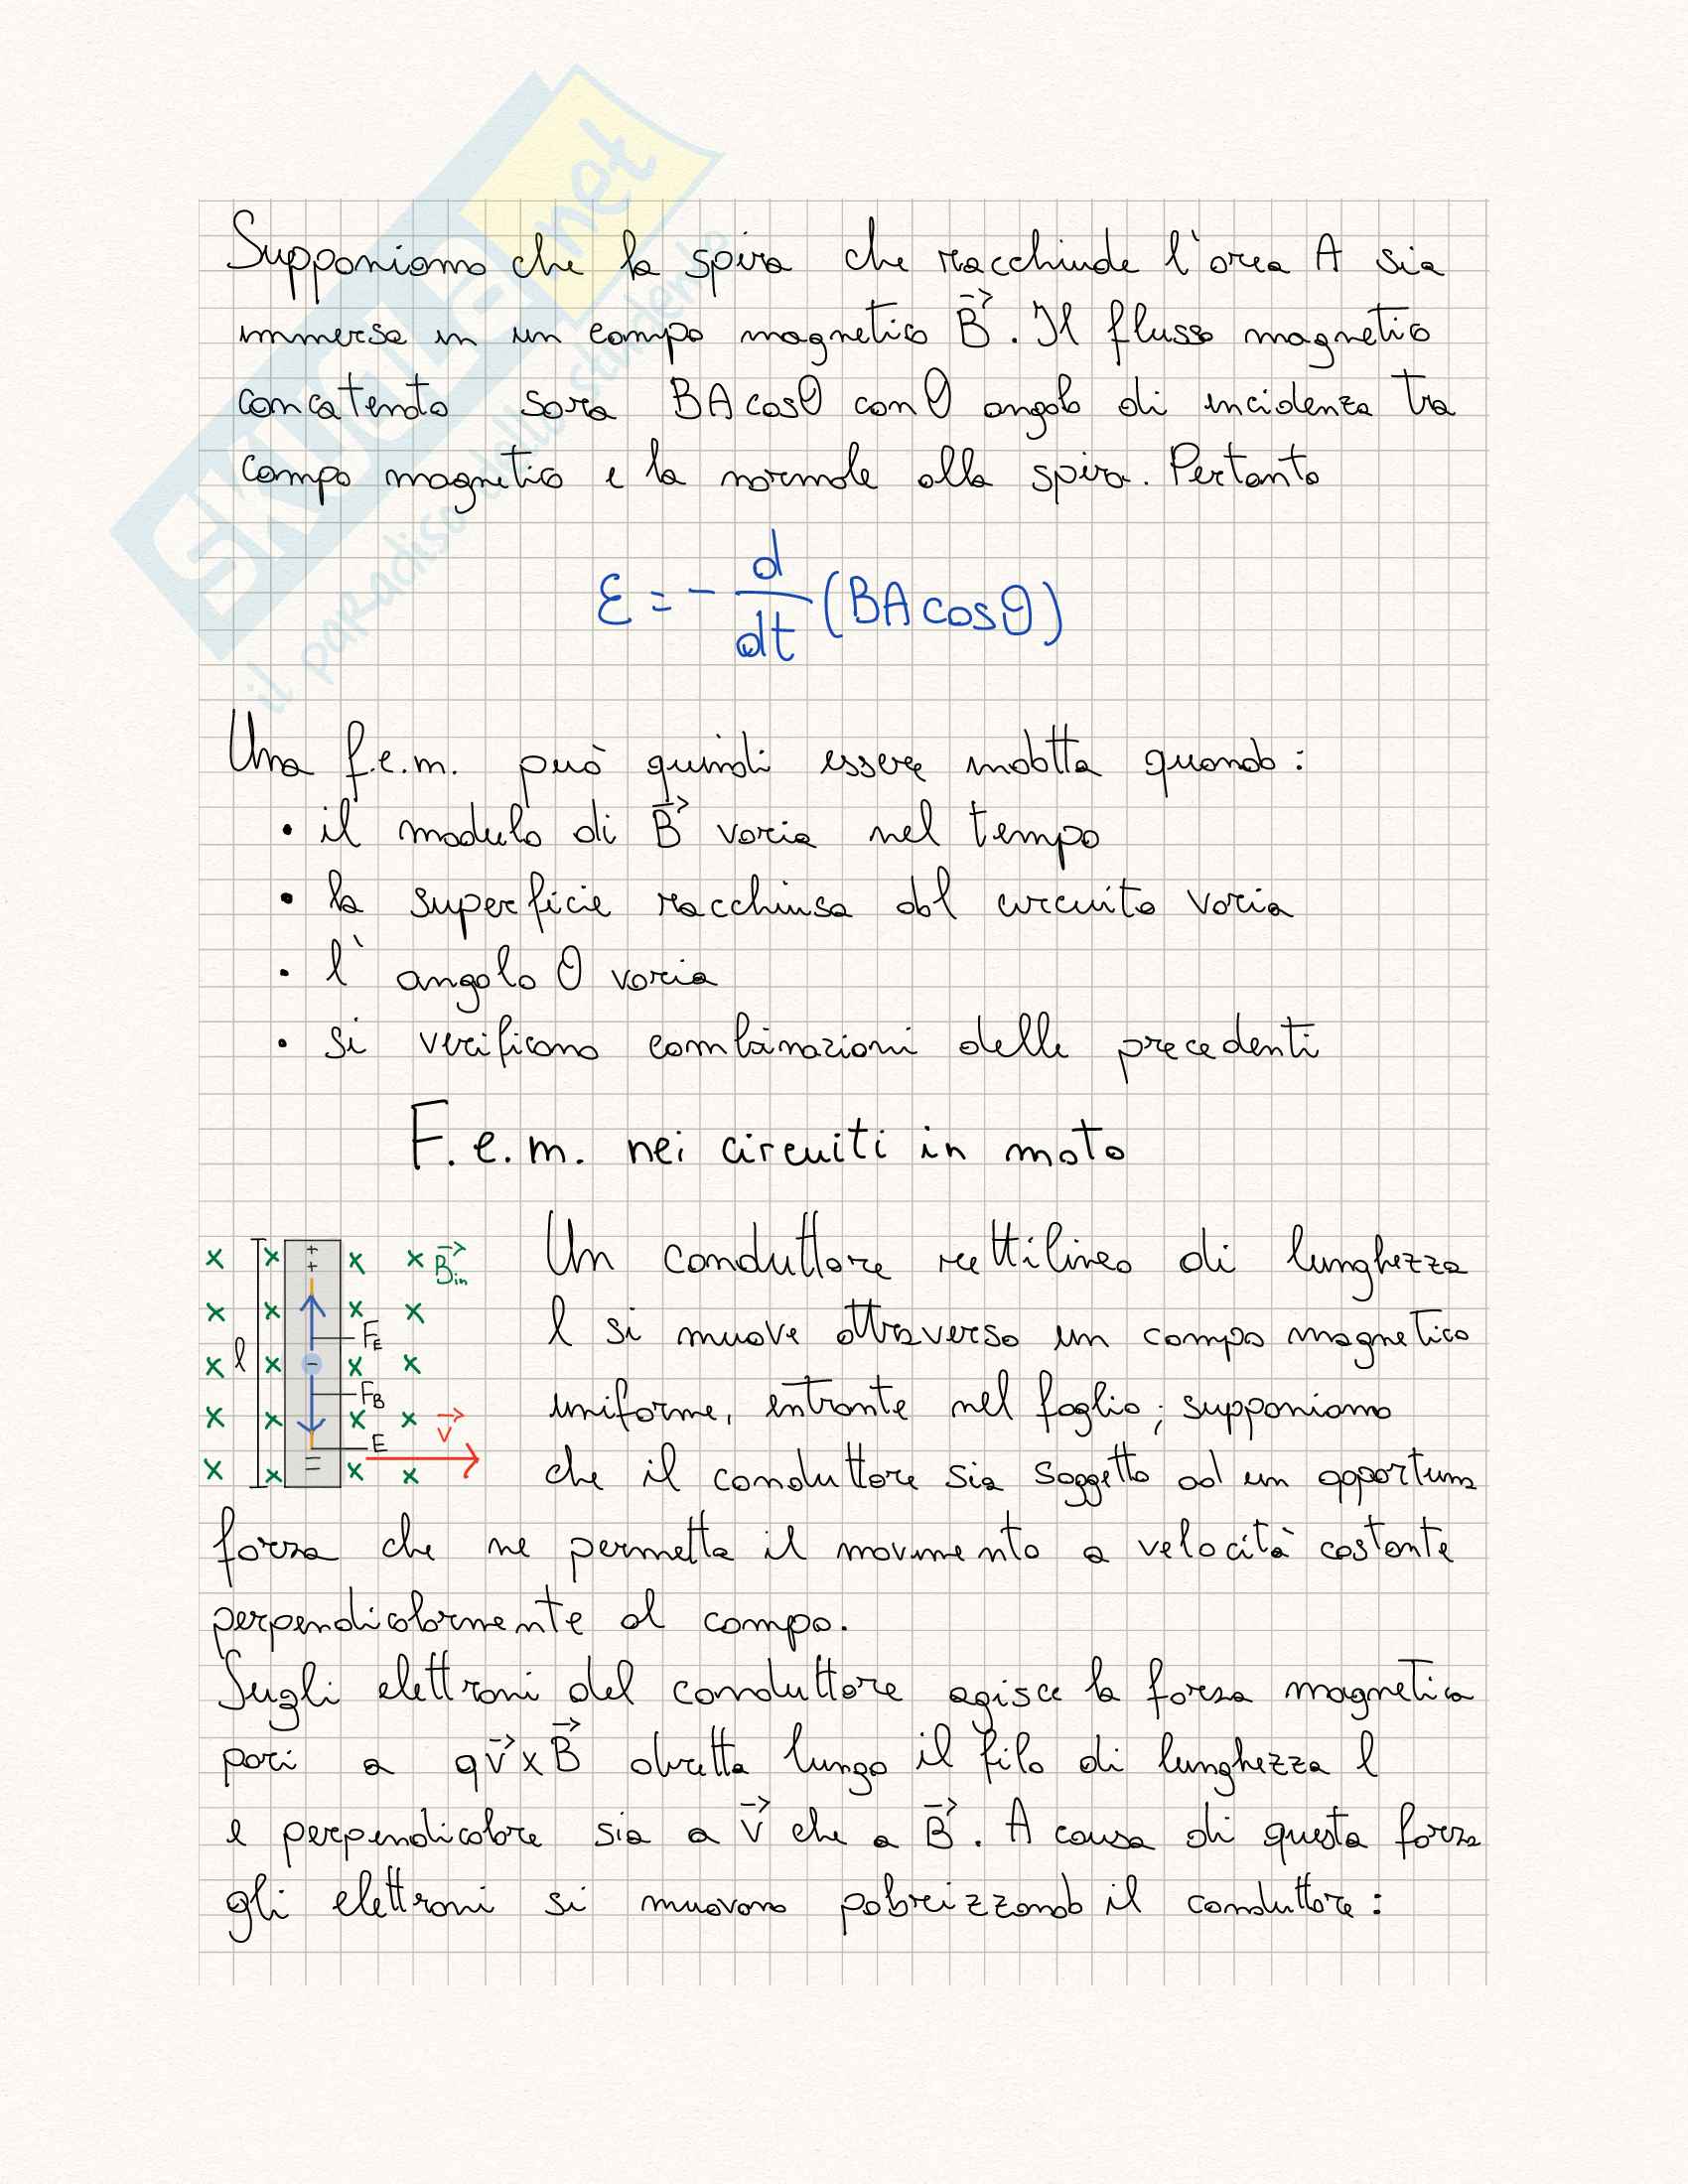 SKUOLA.net
il paradiso dello studente
Supponiamo che la spira che racchiude l'area A sia
immersa in un campo magnetico B⃗. Il flusso magnetico
concatento sara BAcosθ con θ angolo di incidenza tra
campo magnetico e la normale alla spira. Pertanto
ε = - d/dt (BAcosθ)
Una f.e.m. può quindi essere indotta quando:
• il modulo di B⃗ varia nel tempo
• la superficie racchiusa dal circuito varia
• l'angolo θ varia
• si verificano combinazioni delle precedenti
F.e.m. nei circuiti in moto
x x x x B⃗in
x x x x
F_E
x l x - x x
F_B
x x x x v⃗
E
x x x x
Un conduttore rettilineo di lunghezza
l si muove attraverso un campo magnetico
uniforme, entrante nel foglio; supponiamo
che il conduttore sia soggetto ad un opportuna
forza che ne permetta il movimento a velocità costante
perpendicolarmente al campo.
Sugli elettroni del conduttore agisce la forza magnetica
pari a qv⃗xB⃗ diretta lungo il filo di lunghezza l
e perpendicolare sia a v⃗ che a B⃗. A causa di questa forza
gli elettroni si muovono polarizzando il conduttore: